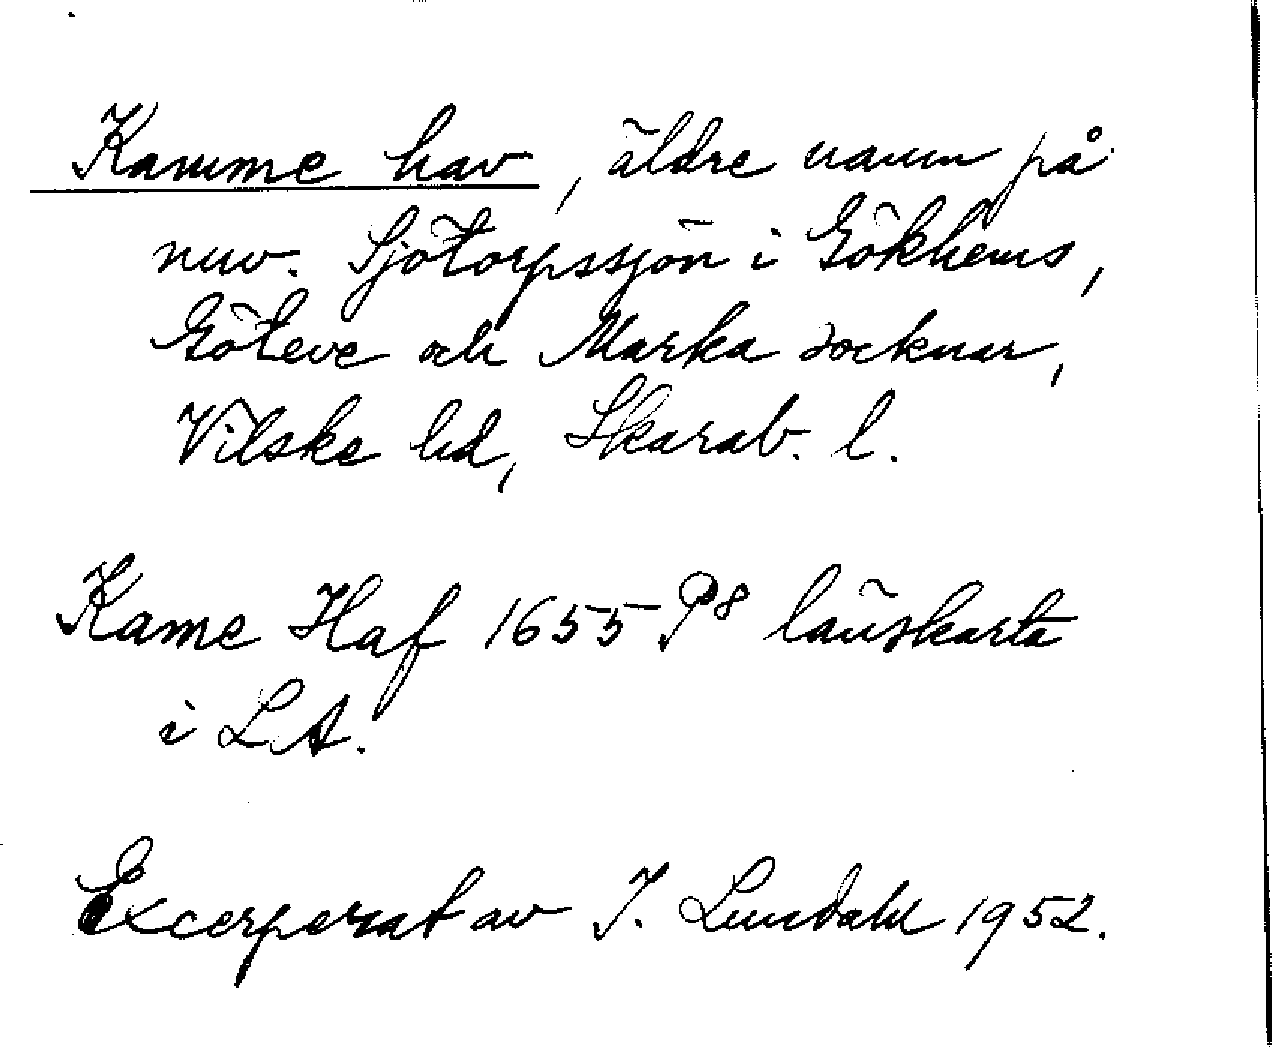 Kamme hav, äldre namn på
nuv. Sjötorpssjön i Gökhems,
Göteve och Marka socknar,
Vilske hd, Skarab. l.
Kame Haf 1655 P8 länskarta
i LA.
Excerperat av I. Lundahl 1952.